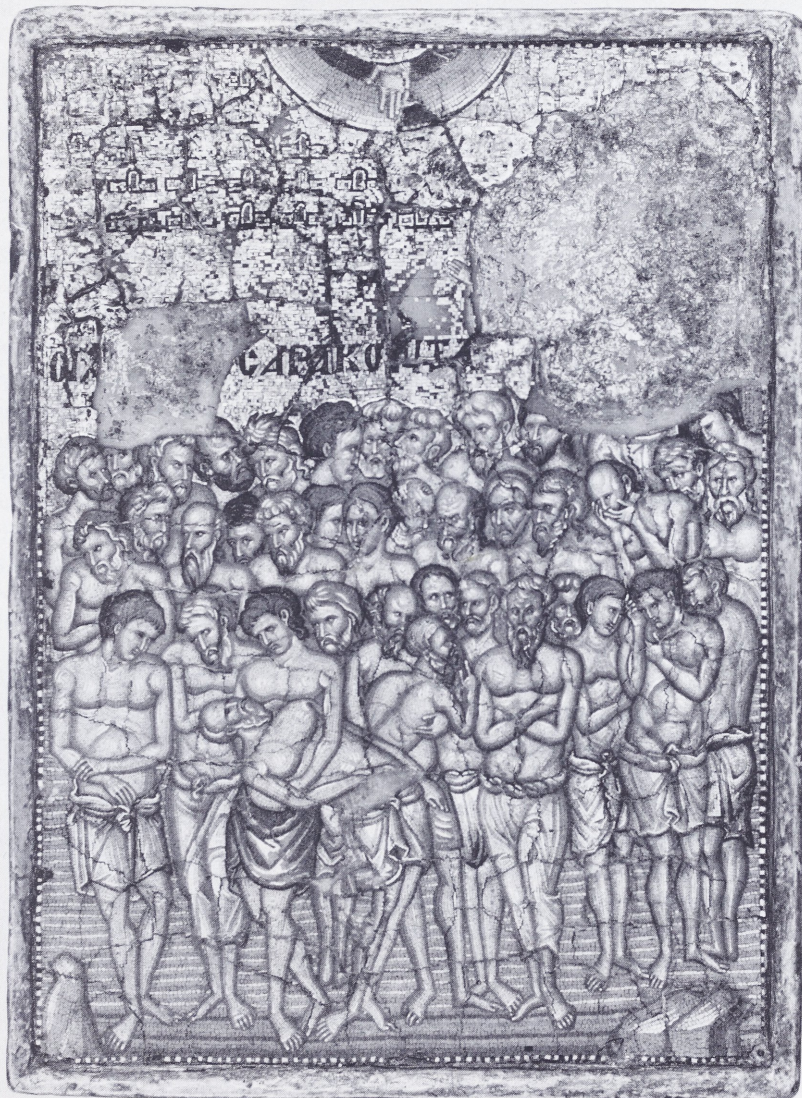 ΟΙ ϹΑΡΑΚΟΝΤΑ